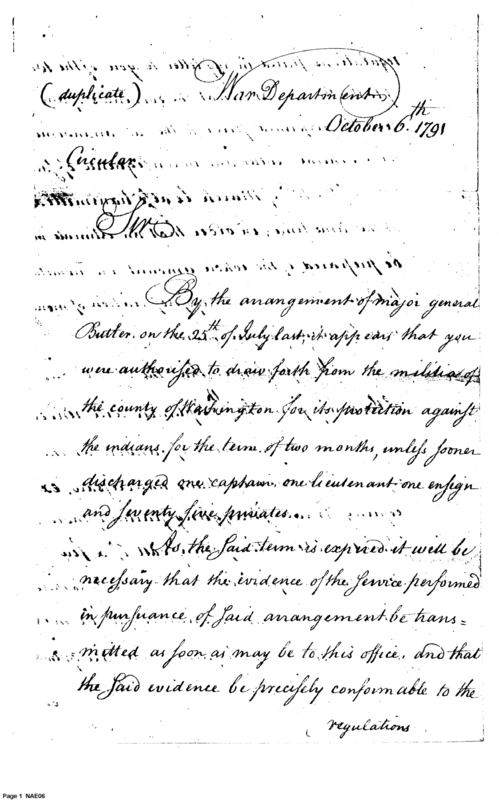 (duplicate.) War Department
October 6.th 1791
Circular
Sir
By the arrangement of major general
Butler on the 25th of July last, it appears that you
were authorised to draw forth from the militia of
the county of Washington for its protection against
the indians for the term of two months, unless sooner
discharged one captain one lieutenant one ensign
and seventy five privates..
As the said term is expired it will be
necessary that the evidence of the service performed
in pursuance of said arrangement be trans=
mitted as soon as may be to this office. and that
the said evidence be precisely conformable to the
regulations
Page 1 NAE06